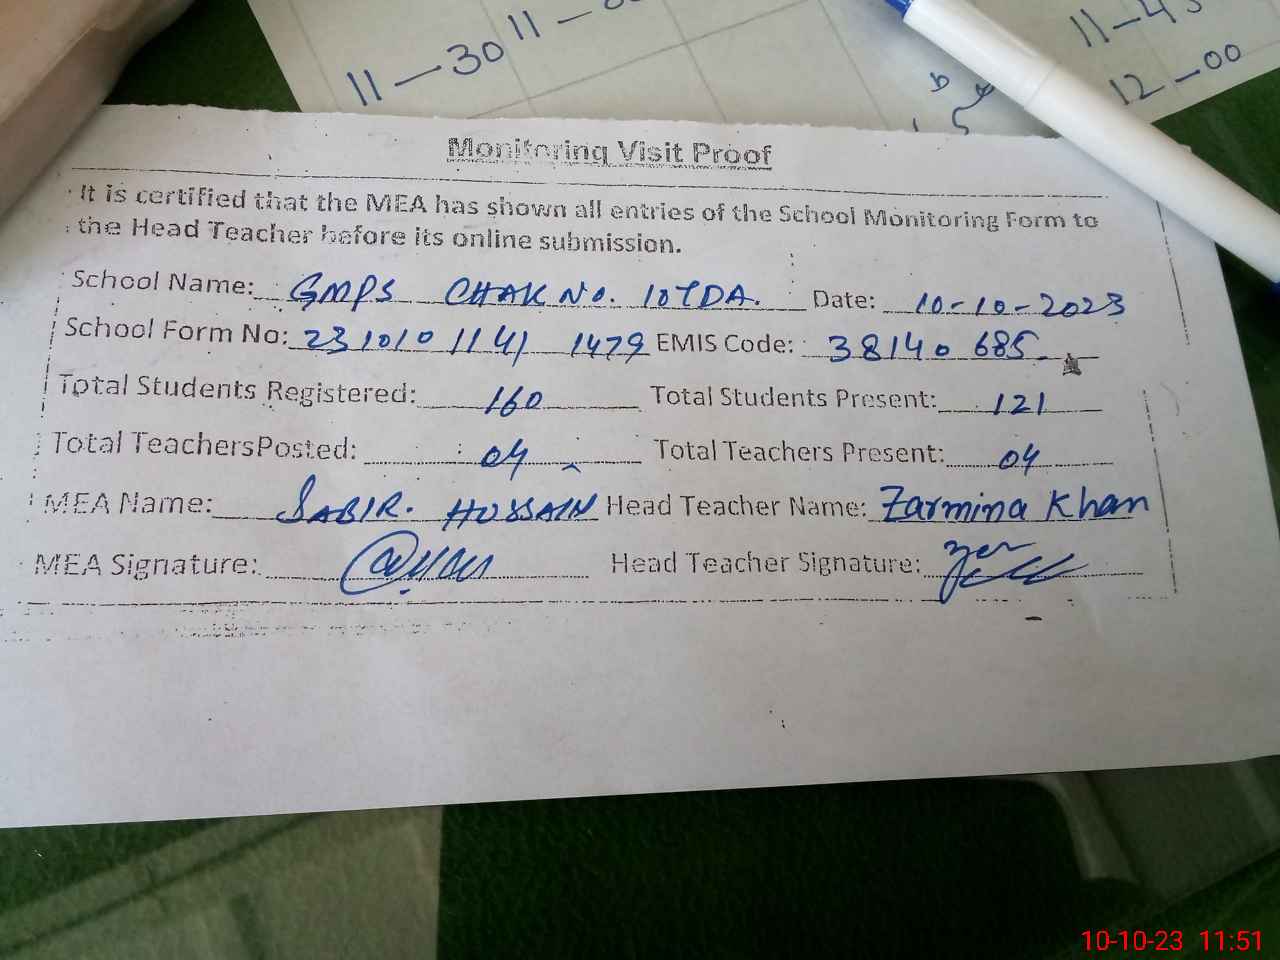 11-30 11-
11-45
12-00
Monitoring Visit Proof
It is certified that the MEA has shown all entries of the School Monitoring Form to
the Head Teacher before its online submission.
School Name: GMPS CHAK NO. 10TDA. Date: 10-10-2023
School Form No: 231010 1141 1479 EMIS Code: 38140 685.
Total Students Registered: 160 Total Students Present: 121
Total TeachersPosted: 04 Total Teachers Present: 04
MEA Name: SABIR. HUSSAIN Head Teacher Name: Zarmina Khan
MEA Signature: Head Teacher Signature:
10-10-23 11:51